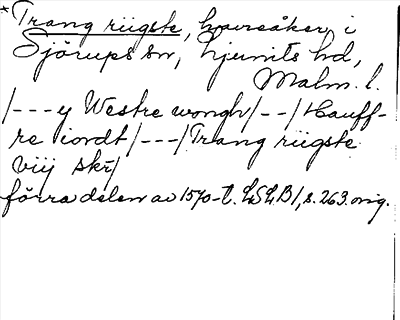 *Trang riigste, havreåker i
Sjörups sn, Ljunits hd,
Malm. l.
/---y Westre wongh/--/Hauff-
re iordt/---/Trang riigste
viij skr/
förra delen av 1570-t. LSLB1, s. 263. orig.